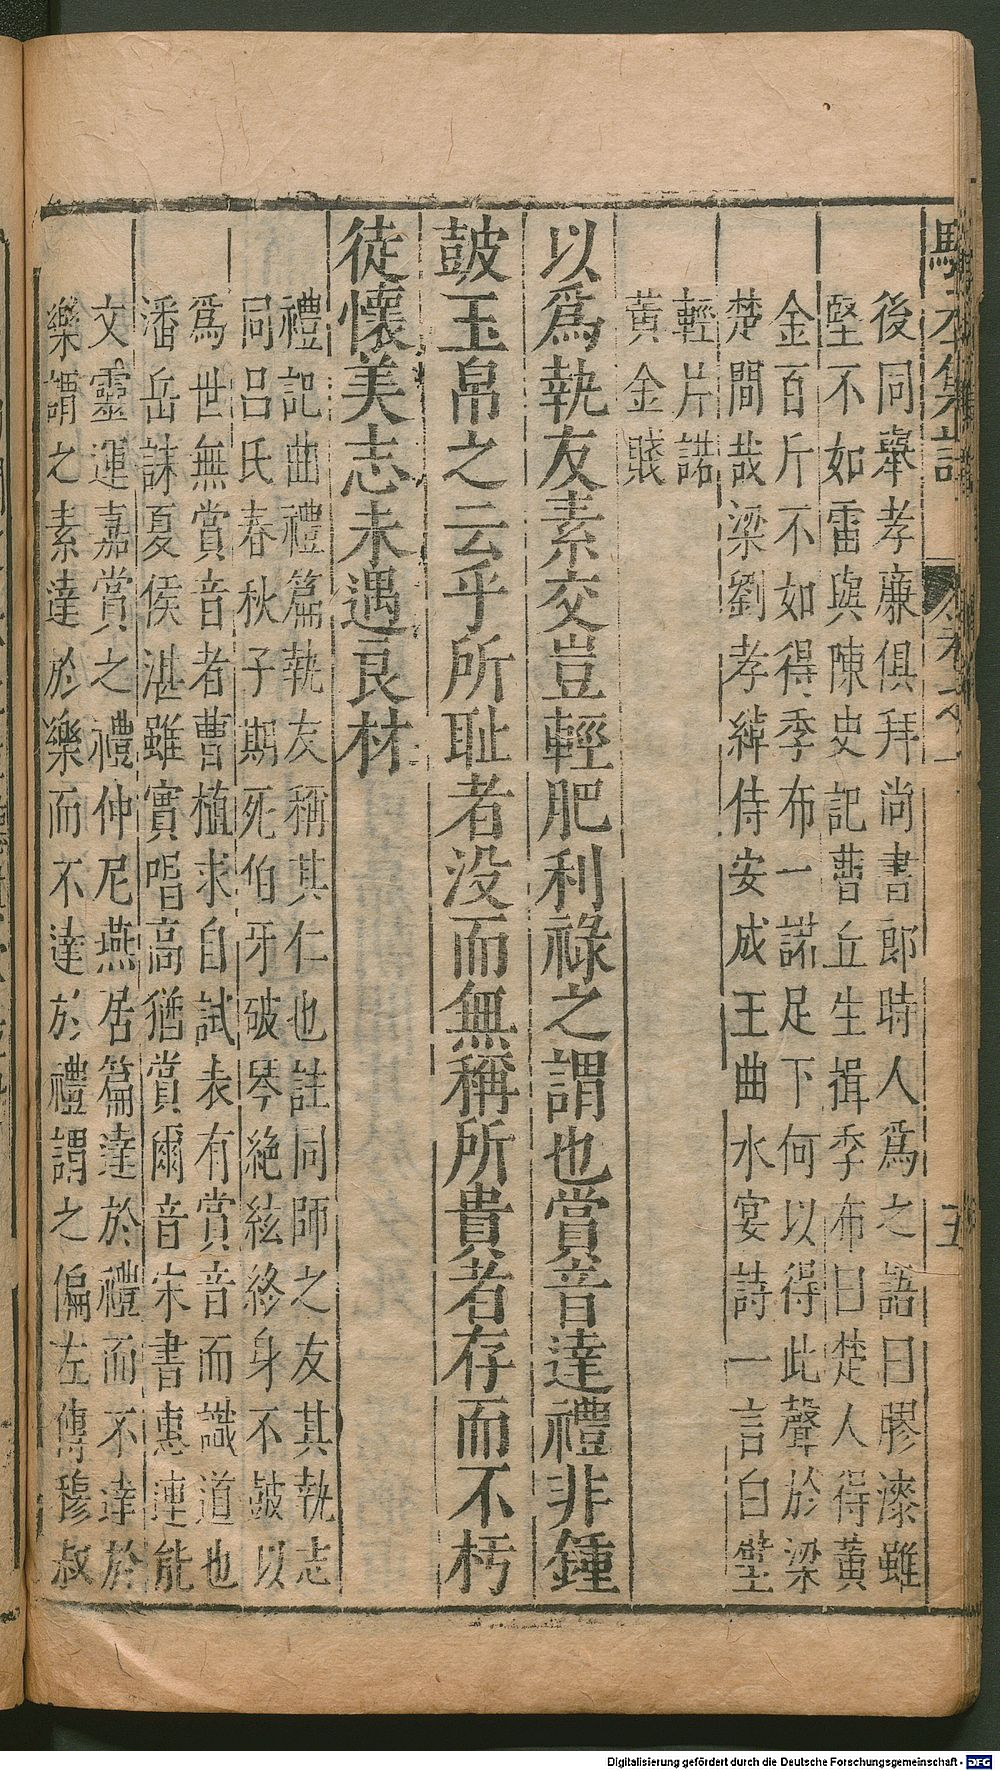 後同舉孝廉俱拜尚書郎時人爲之語曰膠漆雖
堅不如雷與陳史記曹丘生揖季布曰楚人得黃
金百斤不如得季布一諾足下何以得此聲於梁
楚間哉梁劉孝綽侍安成王曲水宴詩一言白璧
輕片諾
黃金賤
以爲執友素交豈輕肥利祿之謂也賞音達禮非鍾
皷玉帛之云乎所耻者没而無稱所貴者存而不朽
徒懷美志未遇良材
禮記曲禮篇執友稱其仁也註同師之友其執志
同呂氏春秋子期死伯牙破琴絶絃終身不皷以
爲世無賞音者曹植求自試表有賞音而識道也
潘岳誄夏侯湛雖實唱高猶賞爾音宋書惠連能
文靈運嘉賞之禮仲尼燕居篇達於禮而不達於
樂謂之素達於樂而不達於禮謂之偏左傳穆叔
五
Digitalisierung gefördert durch die Deutsche Forschungsgemeinschaft - DFG